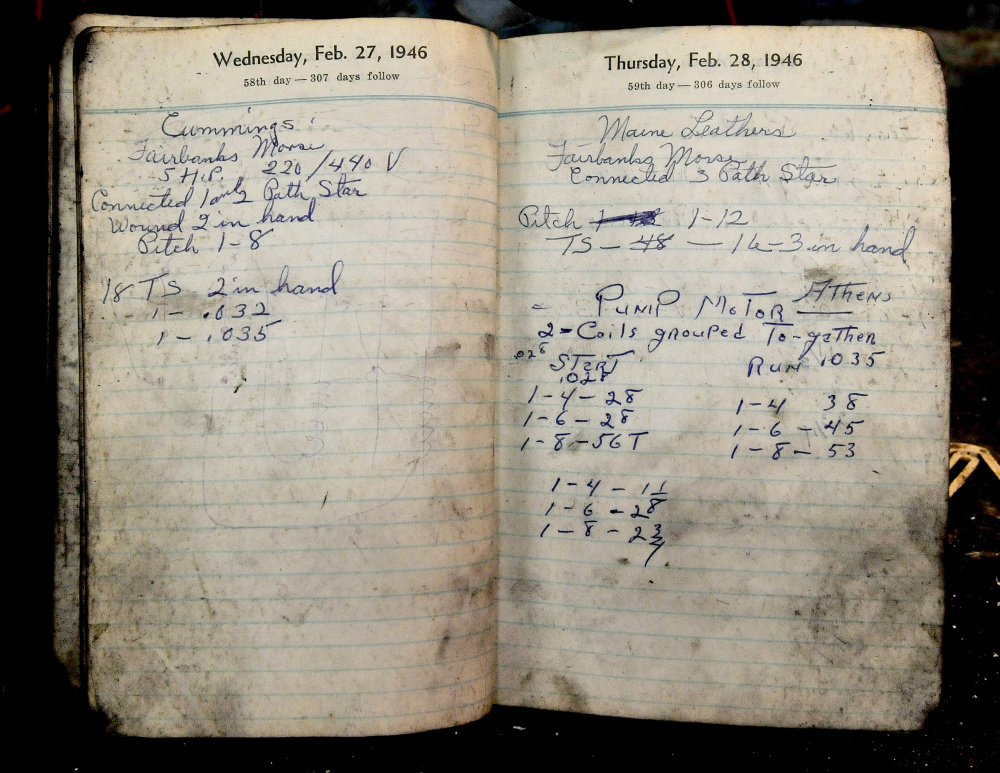 Wednesday, Feb. 27, 1946
58th day — 307 days follow
Cummings:
Fairbanks Morse
5 H.P. 220/440 V
Connected 1 and 2 Path Star
Wound 2 in hand
Pitch 1-8
18 TS 2 in hand
1- .032
1- .035
Thursday, Feb. 28, 1946
59th day — 306 days follow
Maine Leathers
Fairbanks Morse
Connected 3 Path Star
Pitch 1-12
TS - 48 - 16-3 in hand
Athens
= PUMP MOTOR
2- Coils grouped To-gathen
.028
START RUN .035
.028
1-4-28 1-4 38
1-6-28 1-6-45
1-8-56T 1-8-53
1-4-1
1-6-2
1-8-2 3/4